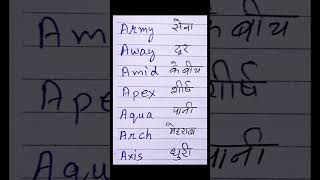 Army सेना
Away दूर
Amid के बीच
Apex शीर्ष
Aqua पानी
Arch मेहराब
Axis धुरी